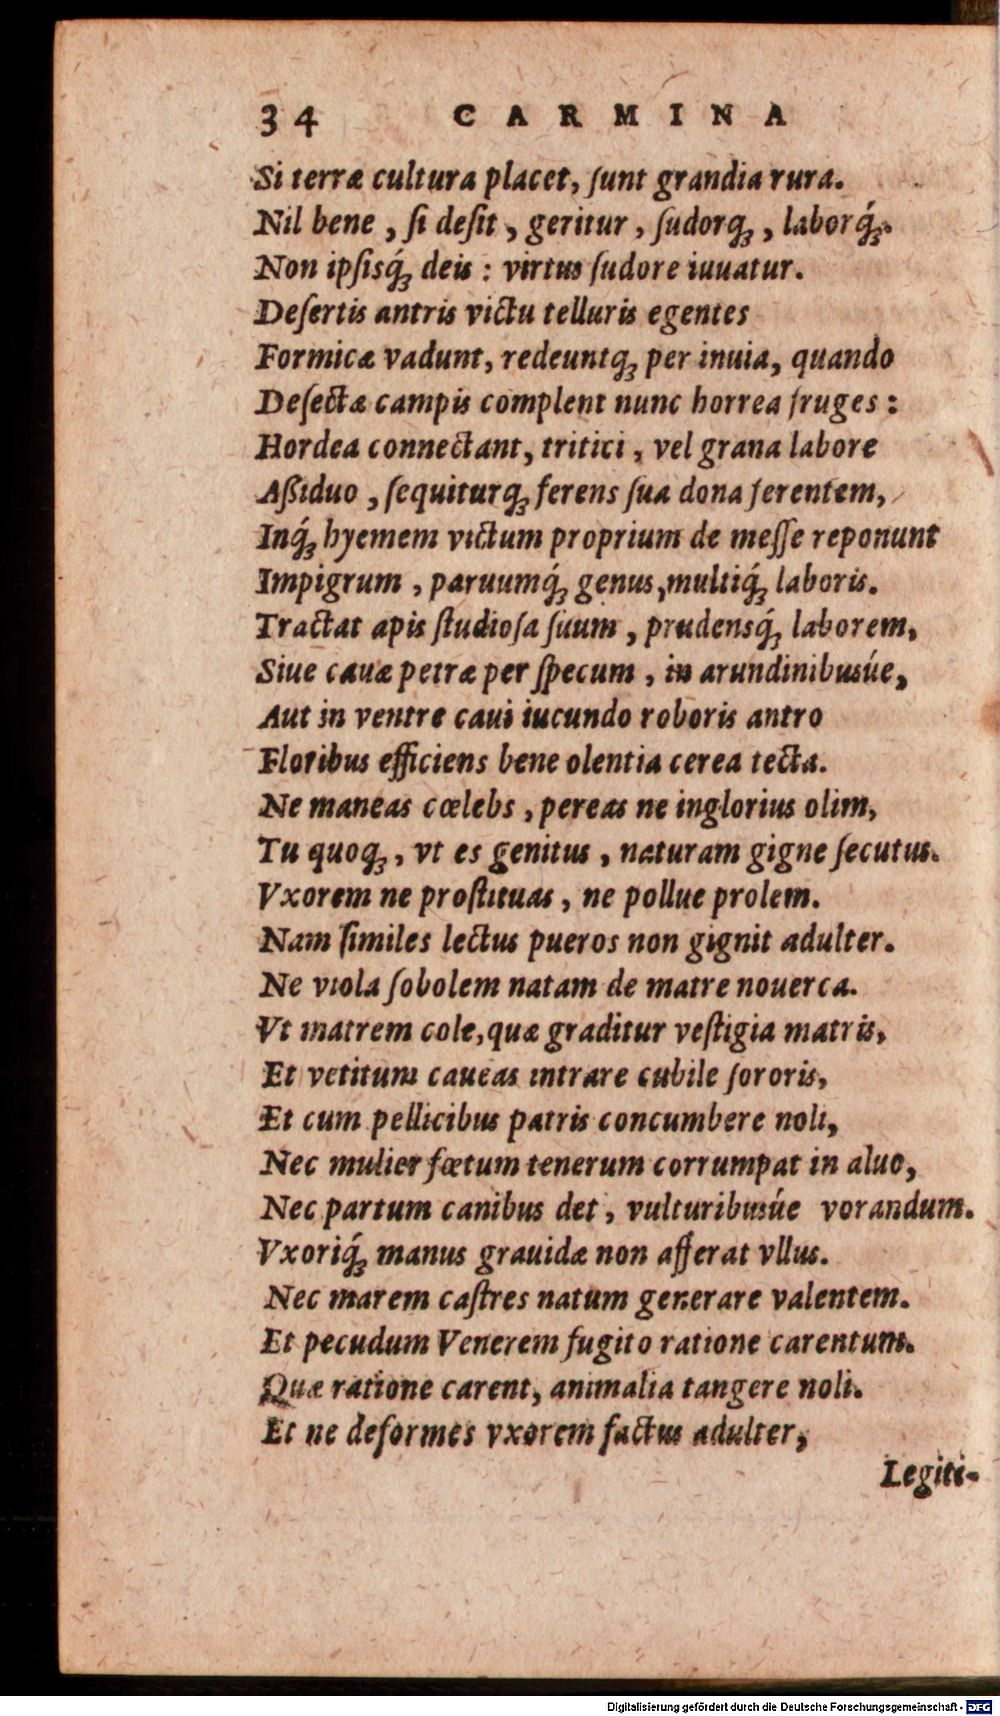 34 CARMINA
Si terræ cultura placet, ſunt grandia rura.
Nil bene , ſi deſit , geritur , ſudorq́ꝫ , laborq́ꝫ.
Non ipſisq́ꝫ deis : virtus ſudore iuuatur.
Deſertis antris victu telluris egentes
Formicæ vadunt, redeuntqꝫ per inuia, quando
Deſectæ campis complent nunc horrea fruges :
Hordea connectant, tritici , vel grana labore
Aßiduo , ſequiturqꝫ ferens ſua dona ferentem,
Inq́ꝫ hyemem victum proprium de meſſe reponunt
Impigrum , paruumq́ꝫ genus, multiq́ꝫ laboris.
Tractat apis ſtudioſa ſuum , prudensq́ꝫ laborem,
Siue cauæ petræ per ſpecum , in arundinibusúe,
Aut in ventre caui iucundo roboris antro
Floribus efficiens bene olentia cerea tecta.
Ne maneas cœlebs , pereas ne inglorius olim,
Tu quoqꝫ , vt es genitus , naturam gigne ſecutus.
Vxorem ne proſtituas , ne pollue prolem.
Nam ſimiles lectus pueros non gignit adulter.
Ne viola ſobolem natam de matre nouerca.
Vt matrem cole, quæ graditur veſtigia matris,
Et vetitum caueas intrare cubile ſororis,
Et cum pellicibus patris concumbere noli,
Nec mulier fœtum tenerum corrumpat in aluo,
Nec partum canibus det , vulturibusúe vorandum.
Vxoriq́ꝫ manus grauidæ non afferat vllus.
Nec marem caſtres natum generare valentem.
Et pecudum Venerem fugito ratione carentum.
Quæ ratione carent, animalia tangere noli.
Et ne deformes vxorem factus adulter,
Legiti-
Digitalisierung gefördert durch die Deutsche Forschungsgemeinschaft - DFG